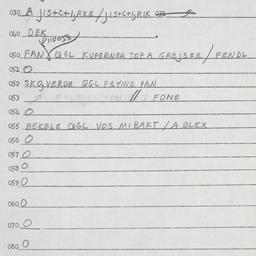 030 A JIS+C+LRKE / JIS+C+LRIK
040 DEK
110055
050 FAN QGL KUPERNER TOP A GREJSER / FENDL
051 0
052 SKQVERDE QGL FRYING PAN
053 // FONE
054 0
055 BEKBLE QGL VOS MIBAKT / A BLEX
056 0
057 0
058 0
059 0
060 0
070 0
080 0